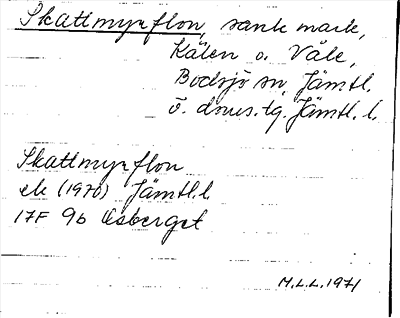 Skattmyrflon, sank mark,
Kälen o. Våle,
Bodsjö sn, Jämtl.
ö. doms.tg. Jämtl. l.
Skattmyrflon
ek (1970) Jämtl. l.
17F 9b Åsberget
M.L.L. 1971